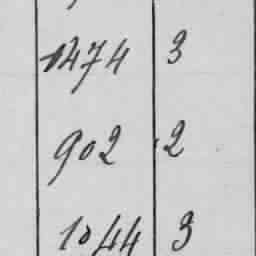 1474 3
902 2
1044 3